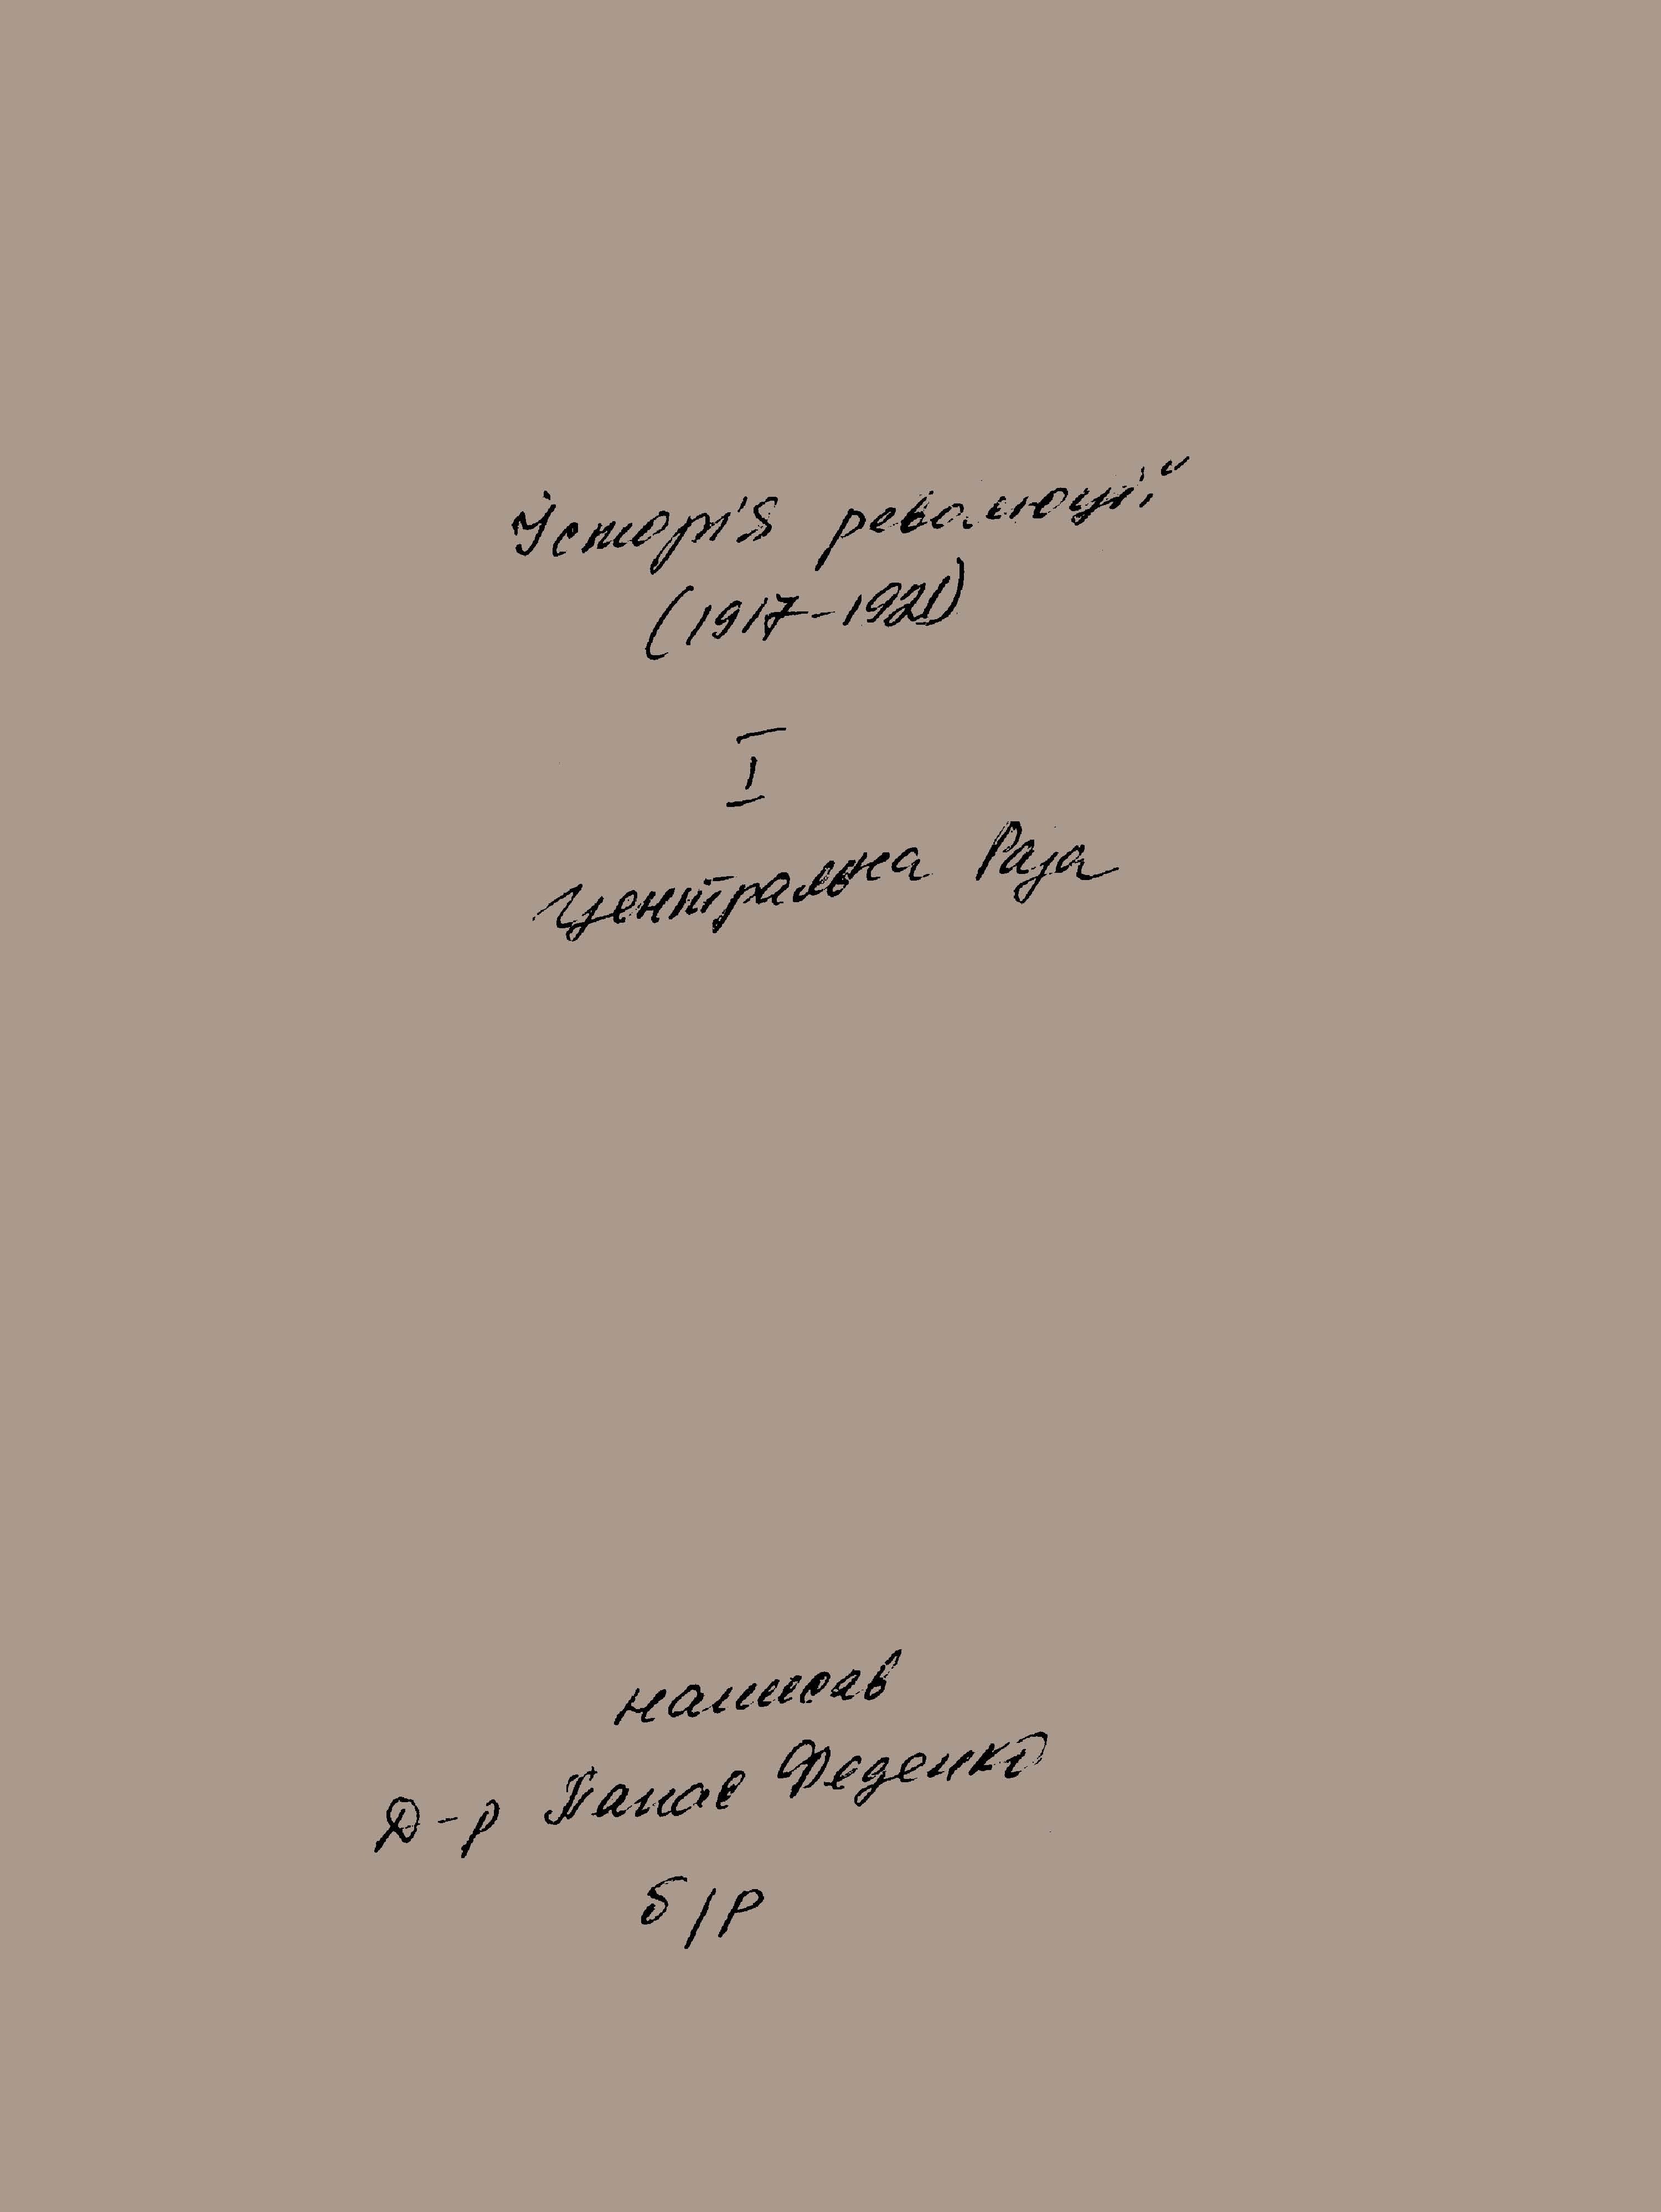 Історія революції"
(1917-1921)
I
Центральна Рада
написав
Д-р Панас Феденко
б/р